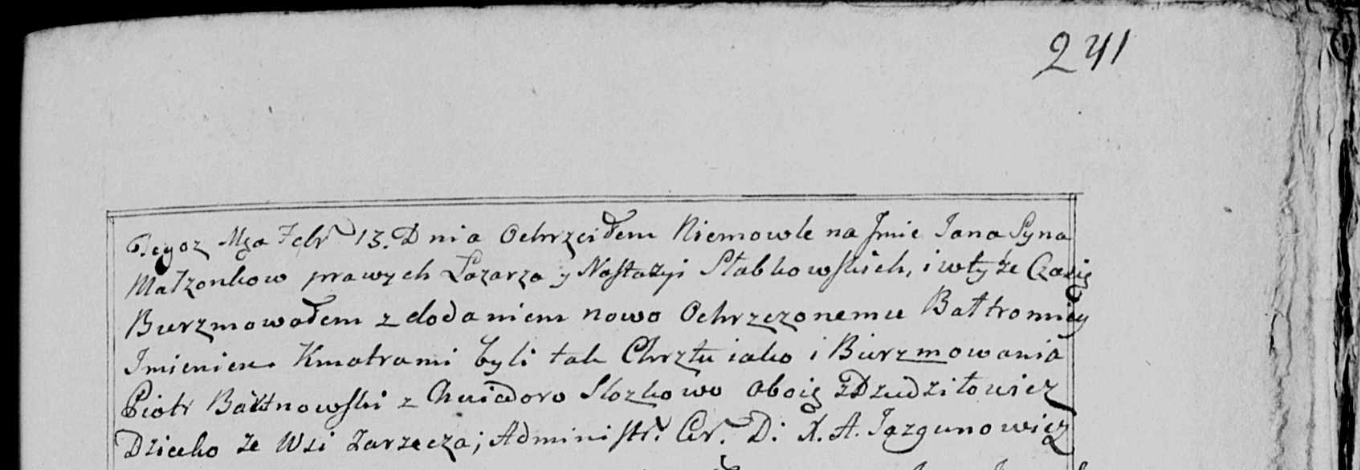 241
Tegoż Mca Febr 13. Dnia Ochrzciłem Niemowle na Jmie Jana Syna
Małzonkow prawych Łazarza y Nastazyi Słabkowskich, i wtyże Czasie
Burzmowałem z dodaniem nowo Ochrzczonemu Bałtromiey
Imieniem Kmotrami byli tak Chrztu iako i Burzmowania
Piotr Bałtnowski z Chwiedoro Slozkowo oboie z Dzudziłowicz
Dziecko ze Wsi Zarzecza; Administr. Cer. D: X. A. Jazgunowicz